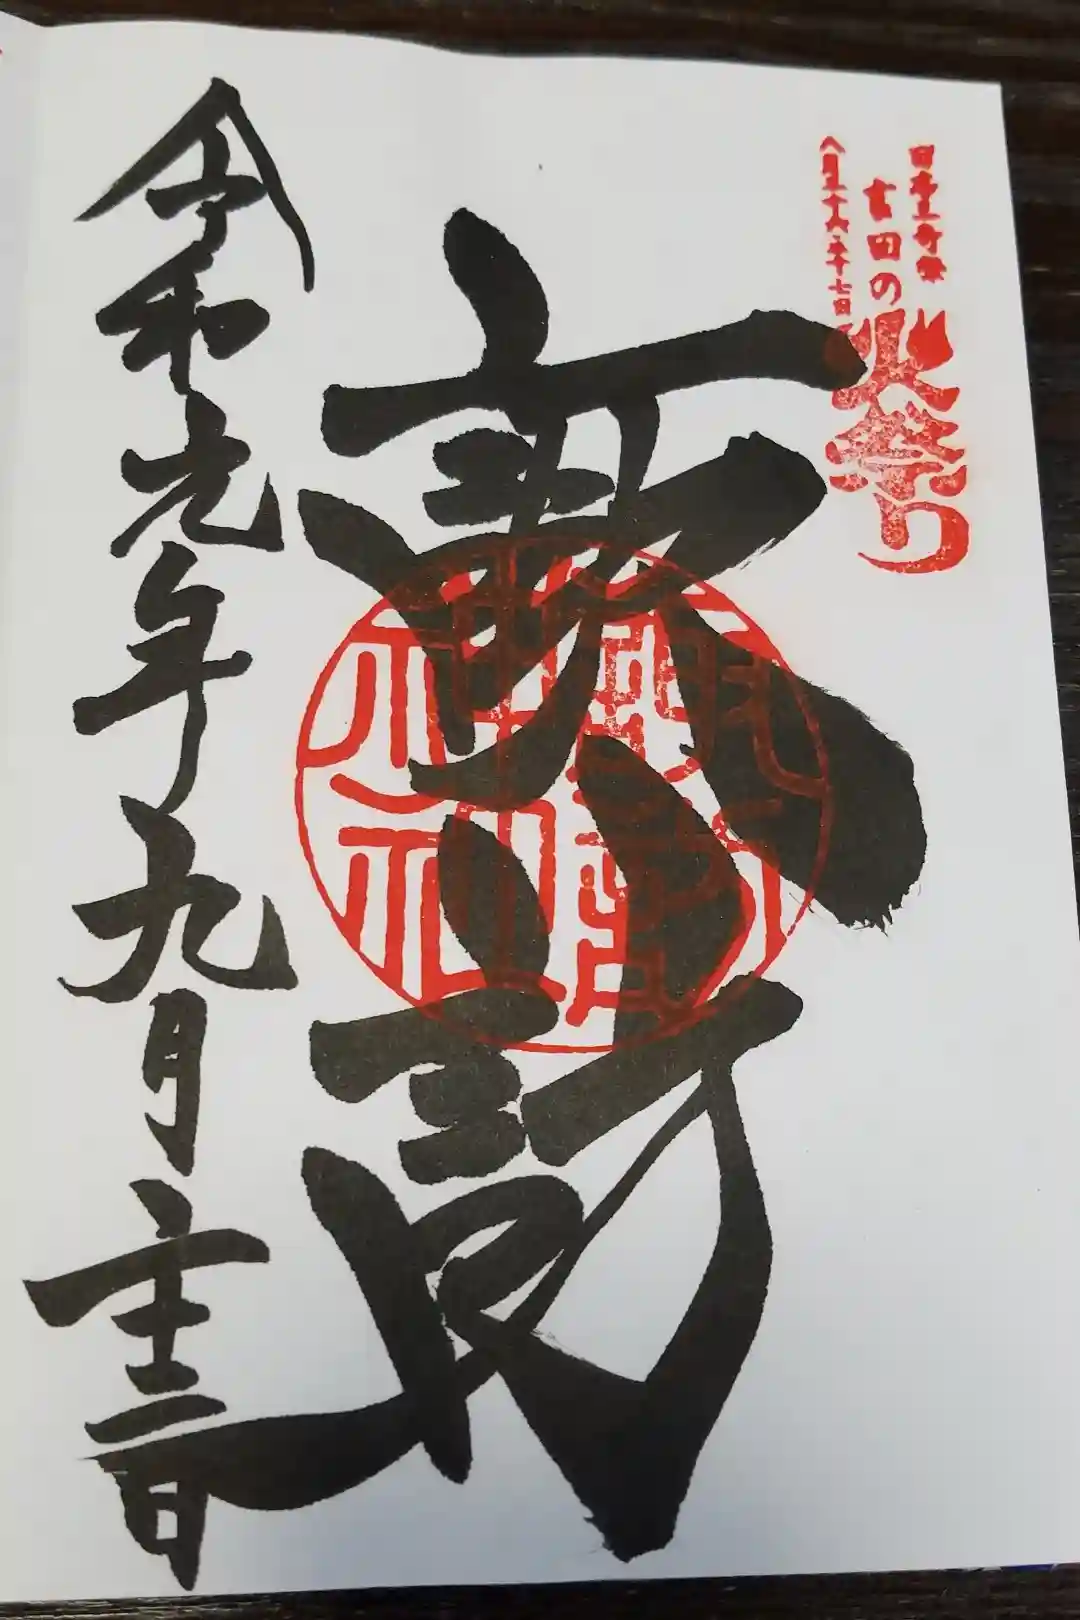 日本三奇祭
吉田の火祭り
八月二十六・二十七日
諏訪
令和元年九月
日